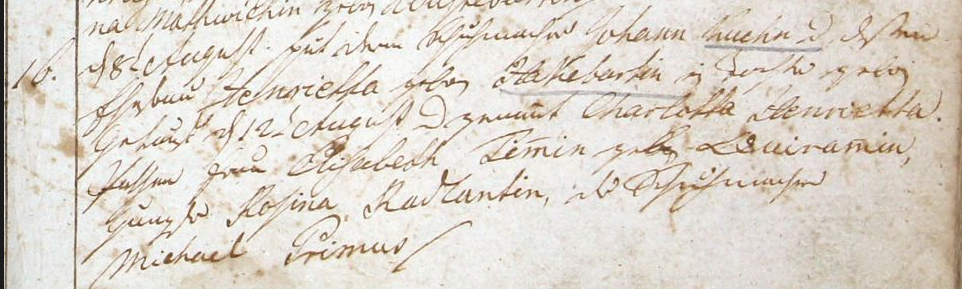 na Maswichin geb.
16. d 8t August. hat dem Schuhmacher Johann Kuehn u. dessen
Ehefrau Henrietta geb. Hakebartin ej Tochter geb.
Getauft d 12t August u. genannt Charlotta Henrietta.
Pathen Frau Elisabeth Timin geb.
Jungfer Rosina Radlantin, der Schuhmacher
Michael Primus